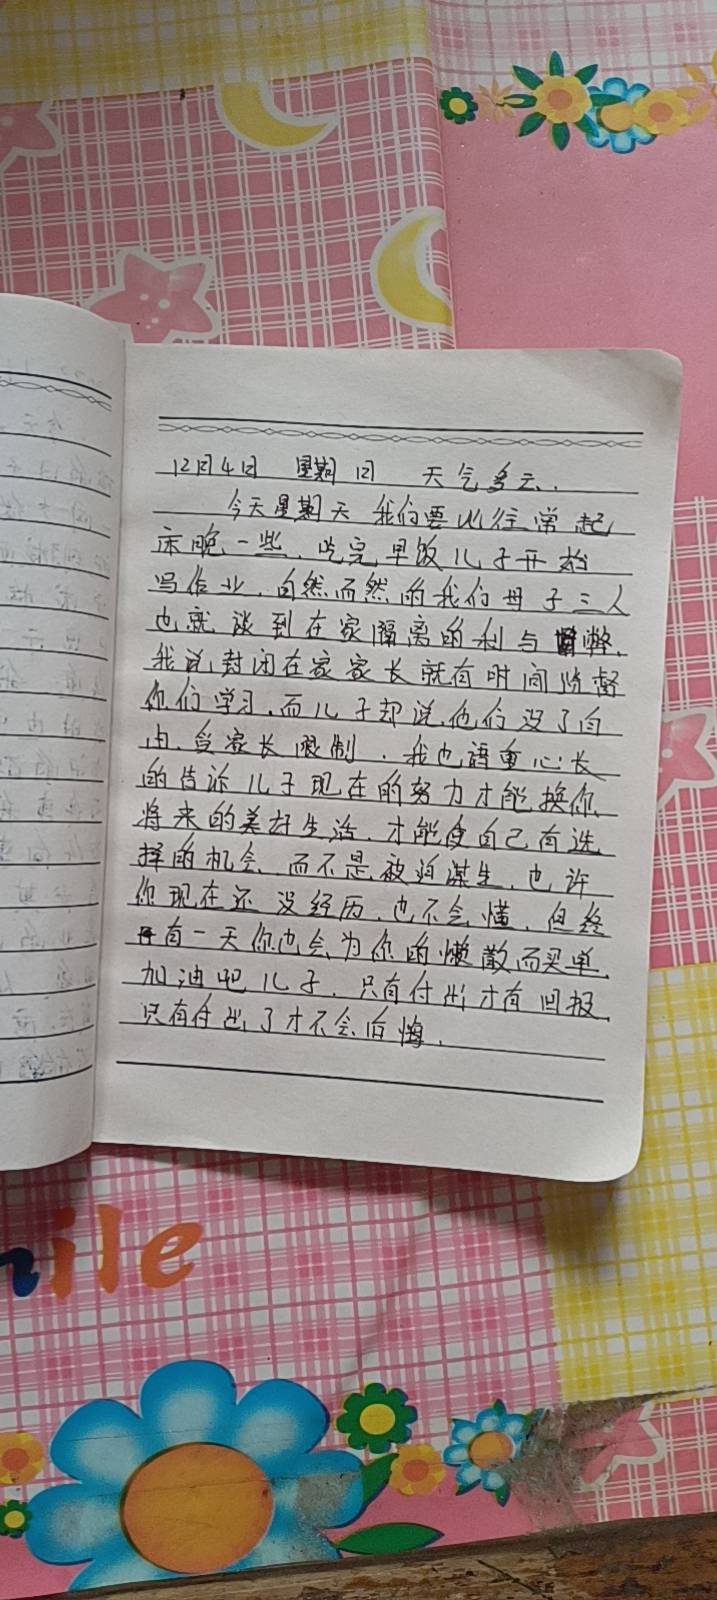 12月4日 星期日 天气多云.
今天星期天 我们要比往常起
床晚一些. 吃完早饭儿子开始
写作业. 自然而然的我们母子三人
也就谈到在家隔离的利与弊.
我说封闭在家家长就有时间监督
你们学习. 而儿子却说. 他们没了自
由. 受家长限制. 我也语重心长
的告诉儿子现在的努力才能换你
将来的美好生活. 才能使自己有选
择的机会. 而不是被迫谋生. 也许
你现在还没经历. 也不会懂. 但终
有一天你也会为你的懒散而买单.
加油吧儿子. 只有付出才有回报.
只有付出了才不会后悔.
ile